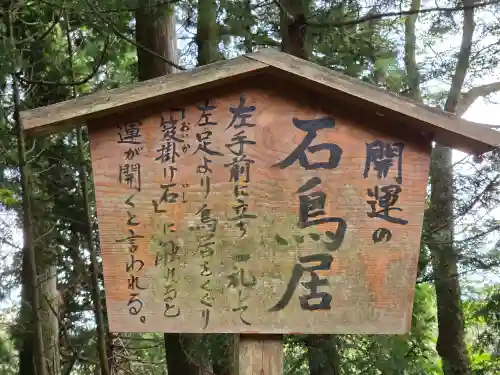 開運の
石鳥居
左手前に立ち一礼して
左足より鳥居をくぐり
「笈掛け石」に触れると
運が開くと言われる。